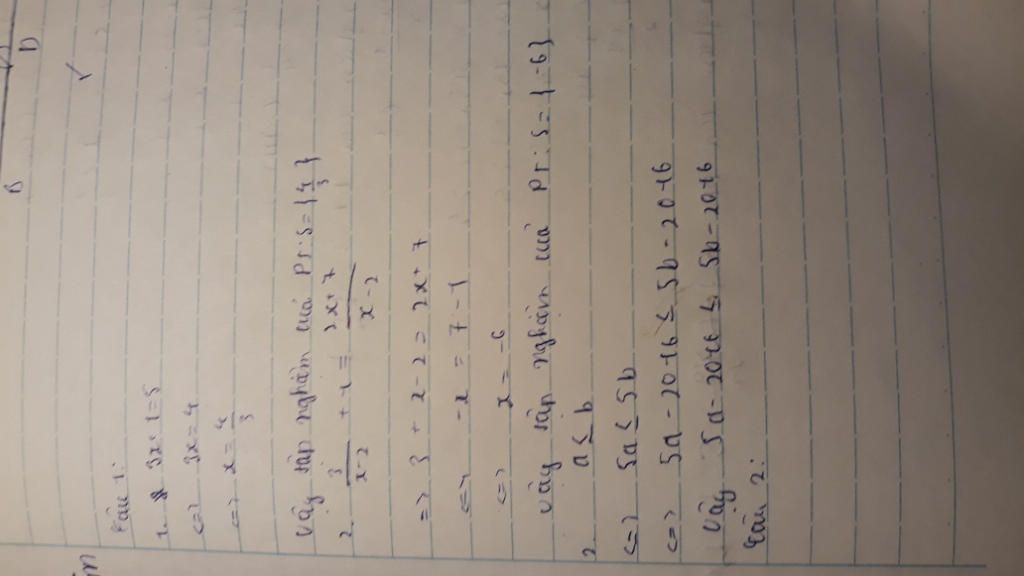 B
D
Câu 1:
1. 3x+1=5
<=> 3x=4
<=> x = 4/3
Vậy tập nghiệm của Pt: S={4/3}
2. 3/(x-2) + 1 = (2x+7)/(x-2)
=> 3 + x - 2 = 2x + 7
<=> -x = 7 - 1
<=> x = -6
Vậy tập nghiệm của Pt: S={-6}
2. a ≤ b
<=> 5a ≤ 5b
<=> 5a - 2016 ≤ 5b - 2016
Vậy 5a - 2016 ≤ 5b - 2016
Câu 2: